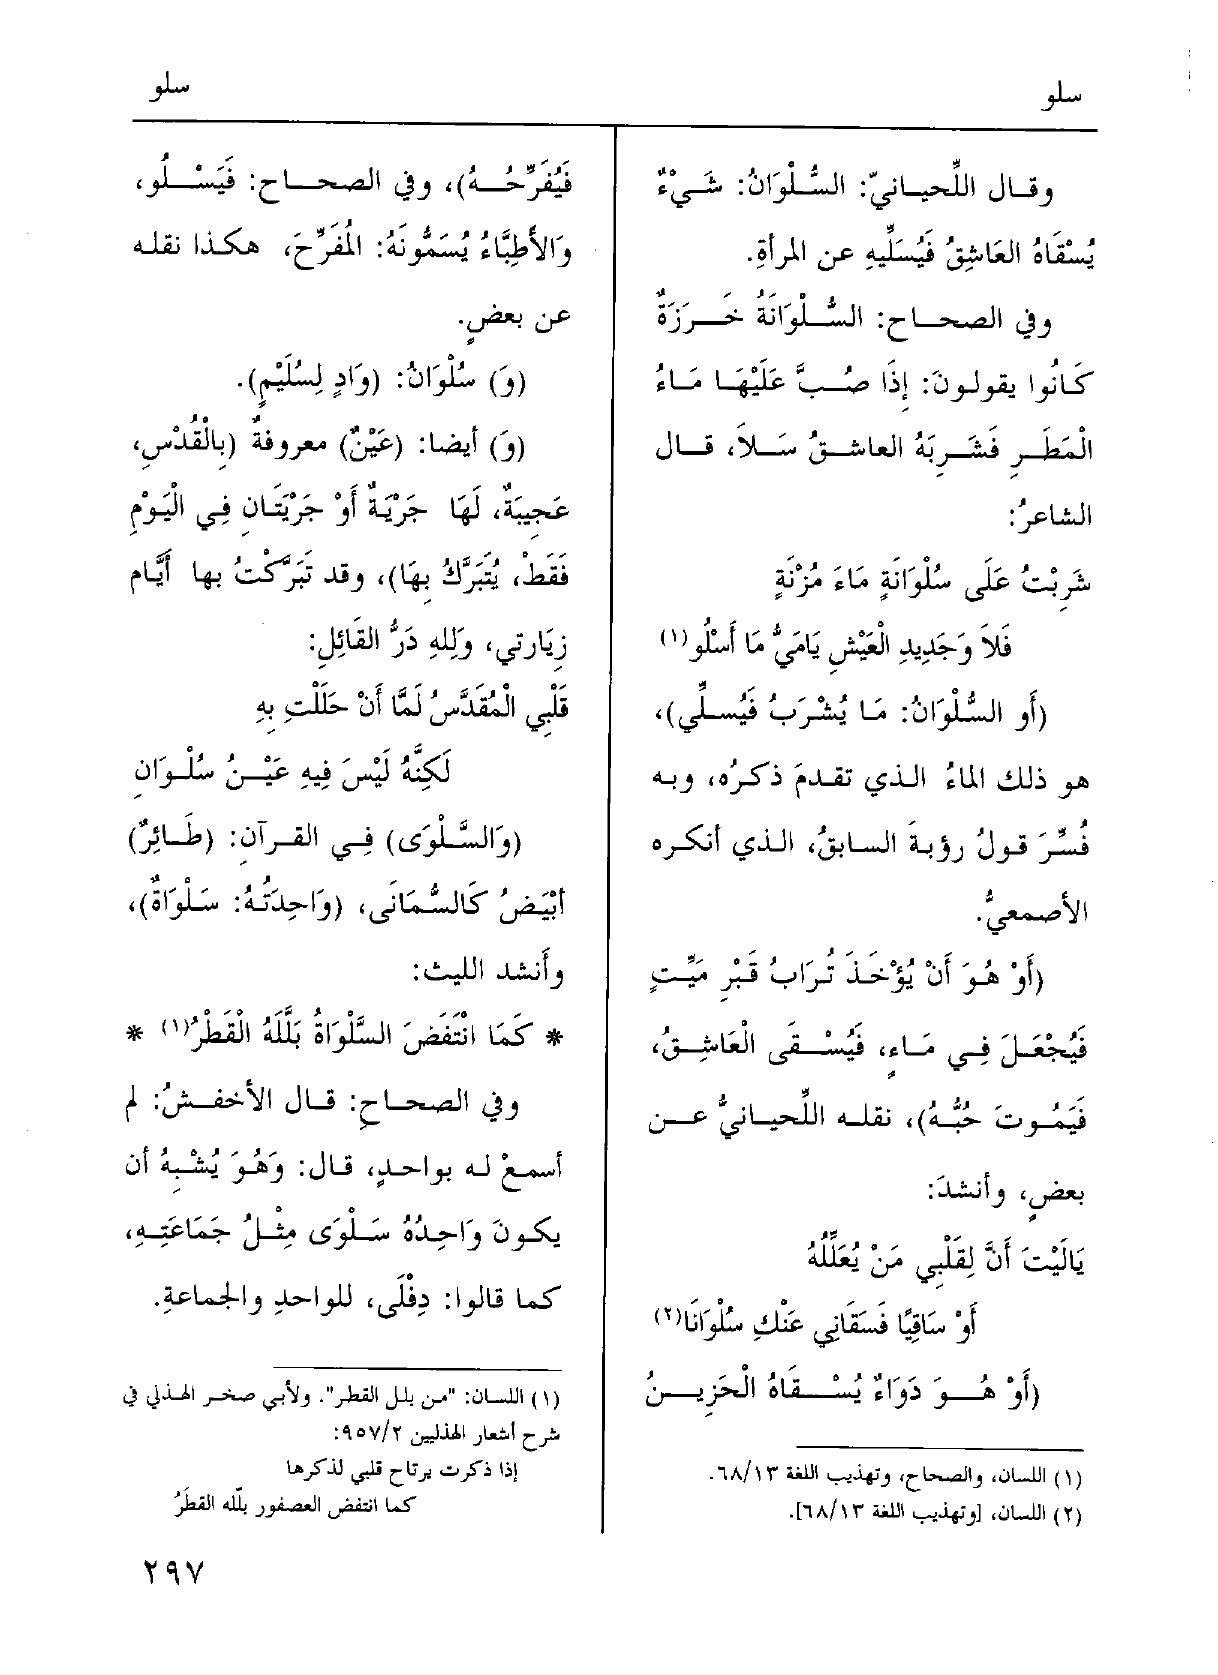 سلو
سلو
وقال اللِّحيانيّ: السُّلْوَانُ: شَيْءٌ
يُسْقَاهُ العَاشِقُ فَيُسَلِّيهِ عن المرأةِ.
وفي الصحاح: السُّلْوَانَةُ خَرَزَةٌ
كَانُوا يقولونَ: إِذَا صُبَّ عَلَيْهَا مَاءُ
الْمَطَرِ فَشَرِبَهُ العاشقُ سَلاَ، قال
الشاعرُ:
شَرِبْتُ عَلَى سُلْوَانَةٍ مَاءَ مُزْنَةٍ
فَلاَ وَجَدِيدِ الْعَيْشِ يَامَيُّ مَا أَسْلُو(١)
(أَو السُّلْوَانُ: مَا يُشْرَبُ فَيُسلِّي)،
هو ذلك الماءُ الذي تقدمَ ذكرُه، وبه
فُسِّرَ قولُ رؤبةَ السابقُ، الذي أنكره
الأصمعيُّ.
(أَوْ هُوَ أَنْ يُؤْخَذَ تُرَابُ قَبْرِ مَيِّتٍ
فَيُجْعَلَ فِي مَاءٍ، فَيُسْقَى الْعَاشِقُ،
فَيَمُوتَ حُبُّهُ)، نقله اللِّحيانيُّ عن
بعضٍ، وأنشدَ:
يَالَيْتَ أَنَّ لِقَلْبِي مَنْ يُعَلِّلُهُ
أَوْ سَاقِيًا فَسَقَانِي عَنْكِ سُلْوَانَا(٢)
(أَوْ هُوَ دَوَاءٌ يُسْقَاهُ الْحَزِينُ
(١) اللسان، والصحاح، وتهذيب اللغة ٦٨/١٣.
(٢) اللسان، [وتهذيب اللغة ٦٨/١٣].
فَيُفَرِّحُهُ)، وفي الصحاح: فَيَسْلُو،
وَالأَطِبَّاءُ يُسَمُّونَهُ: الْمُفَرِّحَ، هكذا نقله
عن بعضٍ.
(وَ) سُلْوَانُ: (وَادٍ لِسُلَيْمٍ).
(وَ) أيضا: (عَيْنٌ) معروفةٌ (بِالْقُدْسِ،
عَجِيبَةٌ، لَهَا جَرْيَةٌ أَوْ جَرْيَتَانِ فِي الْيَوْمِ
فَقَطْ، يُتَبَرَّكُ بِهَا)، وقد تَبَرَّكتُ بها أَيَّام
زِيَارتي، وَلِلهِ دَرُّ القَائِلِ:
قَلْبِي الْمُقَدَّسُ لَمَّا أَنْ حَلَلْتِ بِهِ
لَكِنَّهُ لَيْسَ فِيهِ عَيْنُ سُلْوَانِ
(وَالسَّلْوَى) فِي القرآنِ: (طَائِرٌ)
أَبْيَضُ كَالسُّمَانَى، (وَاحِدَتُهُ: سَلْوَاةٌ)،
وأَنشد الليث:
* كَمَا انْتَفَضَ السَّلْوَاةُ بَلَّلَهُ الْقَطْرُ(١) *
وفي الصحاحِ: قال الأخفشُ: لم
أسمعْ له بواحدٍ، قال: وَهُوَ يُشْبِهُ أن
يكونَ وَاحِدُهُ سَلْوَى مِثْلُ جَمَاعَتِهِ،
كما قالوا: دِفْلَى، للواحدِ والجماعةِ.
(١) اللسان: "من بلل القطر". ولأبي صخر الهذلي في
شرح أشعار الهذليين ٩٥٧/٢:
إذا ذكرت يرتاح قلبي لذكرها
كما انتفض العصفور بلّله القطرُ
٢٩٧